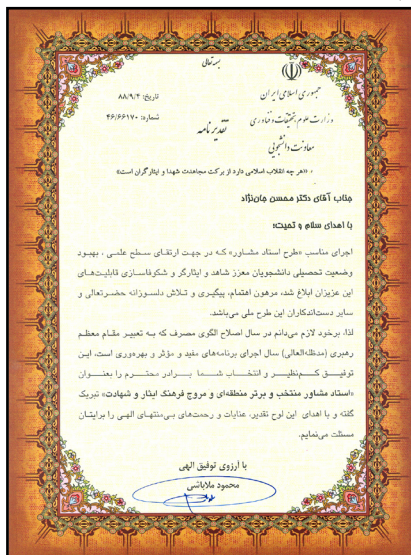 بسمه تعالی
جمهوری اسلامی ایران
وزارت علوم، تحقیقات و فناوری
معاونت دانشجویی
تاریخ: ۸۸/۹/۴
شماره: ۴۶/۶۶۱۷۰
تقدیرنامه
«هر چه انقلاب اسلامی دارد از برکت مجاهدت شهدا و ایثارگران است»
جناب آقای دکتر محسن جان‌نژاد
با اهدای سلام و تحیت؛
اجرای مناسب «طرح استاد مشاور» که در جهت ارتقای سطح علمی ، بهبود
وضعیت تحصیلی دانشجویان معزز شاهد و ایثارگر و شکوفاسازی قابلیت‌های
این عزیزان ابلاغ شد، مرهون اهتمام، پیگیری و تلاش دلسوزانه حضرتعالی و
سایر دست‌اندکاران این طرح ملی می‌باشد.
لذا، برخود لازم می‌دانم در سال اصلاح الگوی مصرف که به تعبیر مقام معظم
رهبری (مدظله‌العالی) سال اجرای برنامه‌های مفید و مؤثر و بهره‌وری است، این
توفیق کم‌نظیر و انتخاب شما برادر محترم را بعنوان
«استاد مشاور منتخب و برتر منطقه‌ای و مروج فرهنگ ایثار و شهادت» تبریک
گفته و با اهدای این لوح تقدیر، عنایات و رحمت‌های بی‌منتهای الهی را برایتان
مسئلت می‌نمایم.
با آرزوی توفیق الهی
محمود ملاباشی